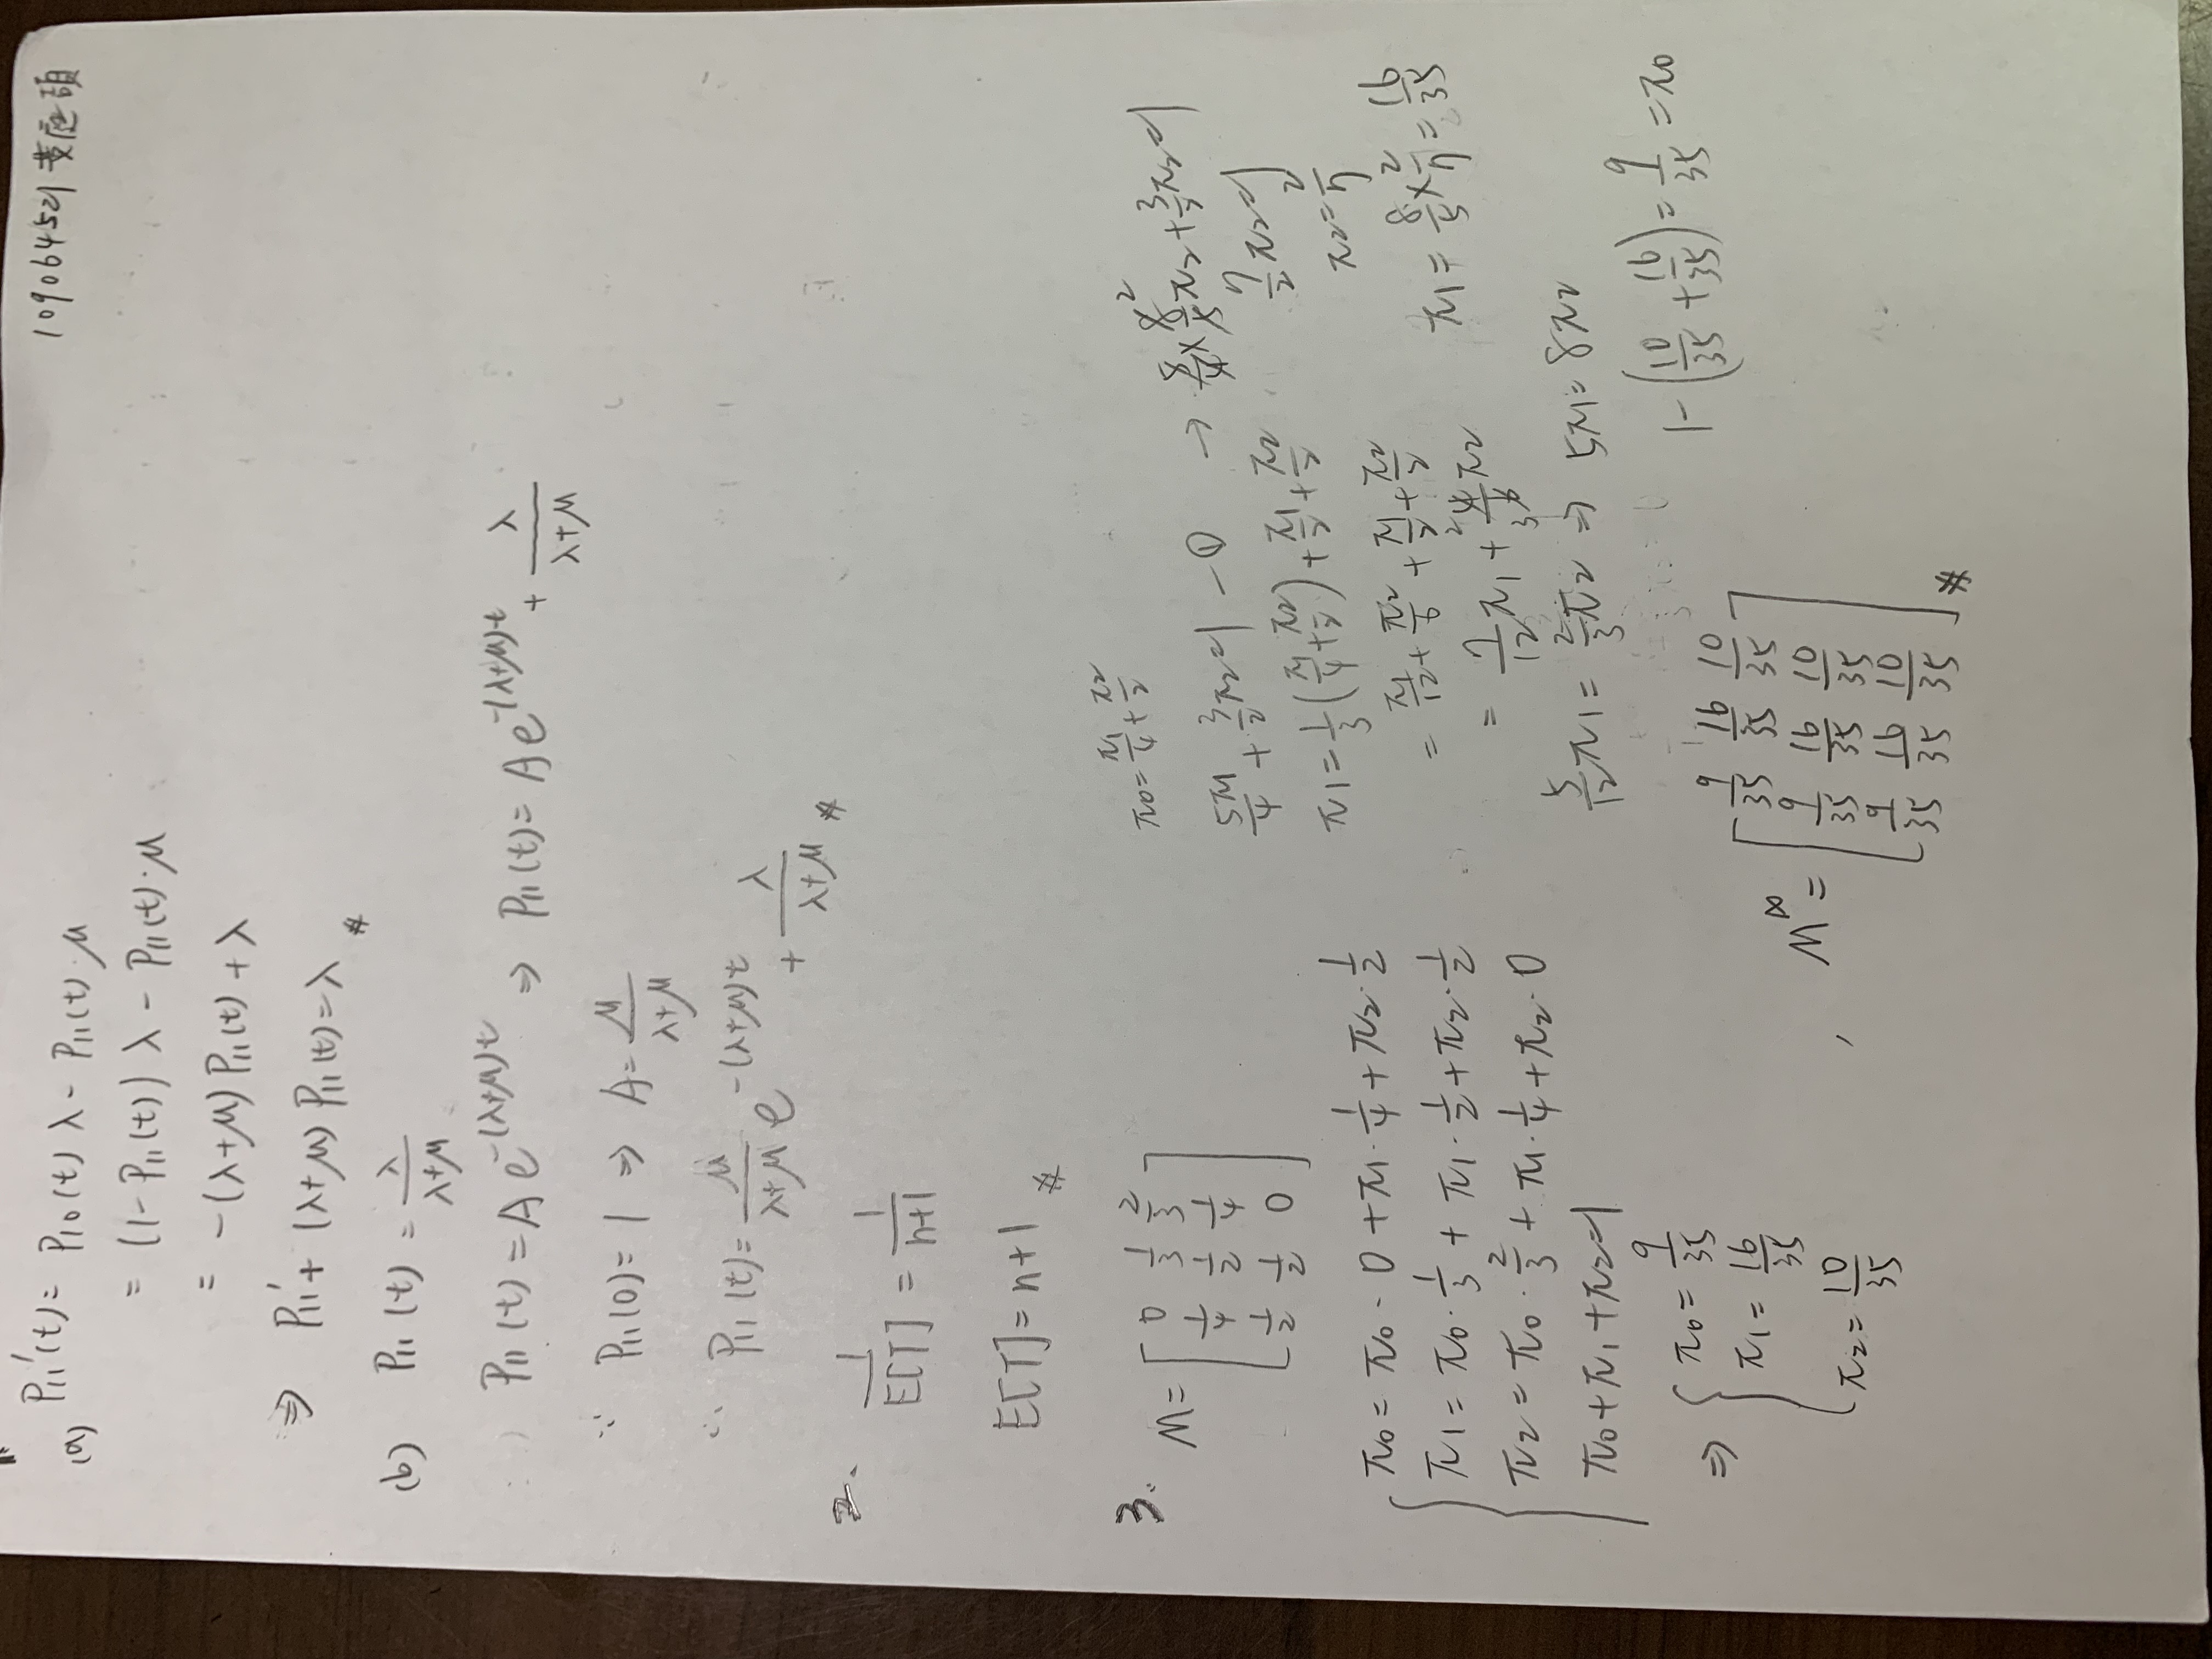 109064521 黃庭頡
1.
(a) P₁₁'(t) = P₁₀(t) λ - P₁₁(t)·μ
= (1 - P₁₁(t)) λ - P₁₁(t)·μ
= -(λ+μ) P₁₁(t) + λ
⇒ P₁₁' + (λ+μ) P₁₁(t) = λ #
(b) P₁₁(t) = λ/(λ+μ)
P₁₁(t) = A e^{-(λ+μ)t} ⇒ P₁₁(t) = A e^{-(λ+μ)t} + λ/(λ+μ)
∵ P₁₁(0) = 1 ⇒ A = μ/(λ+μ)
∴ P₁₁(t) = μ/(λ+μ) e^{-(λ+μ)t} + λ/(λ+μ) #
2.
1/E[T] = 1/(n+1)
E[T] = n+1 #
3.
M = [ 0 1/3 2/3
1/4 1/2 1/4
1/2 1/2 0 ]
π0 = π0·0 + π1·1/4 + π2·1/2
π1 = π0·1/3 + π1·1/2 + π2·1/2
π2 = π0·2/3 + π1·1/4 + π2·0
π0 + π1 + π2 = 1
⇒ π0 = 9/35
π1 = 16/35
π2 = 10/35
, M^∞ = [ 9/35 16/35 10/35
9/35 16/35 10/35
9/35 16/35 10/35 ] #
π0 = π1/4 + π2/2
5π1/4 + 3/2 π2 = 1 - ①
π1 = 1/3 (π1/4 + π2/2) + π1/2 + π2/2
= π1/12 + π2/6 + π1/2 + π2/2
= 7/12 π1 + 4/6 π2
5/12 π1 = 2/3 π2 ⇒ 5π1 = 8π2
→ 5/4 × 8/5 π2 + 3/2 π2 = 1
7/2 π2 = 1
π2 = 2/7
π1 = 8/5 × 2/7 = 16/35
1 - (10/35 + 16/35) = 9/35 = π0